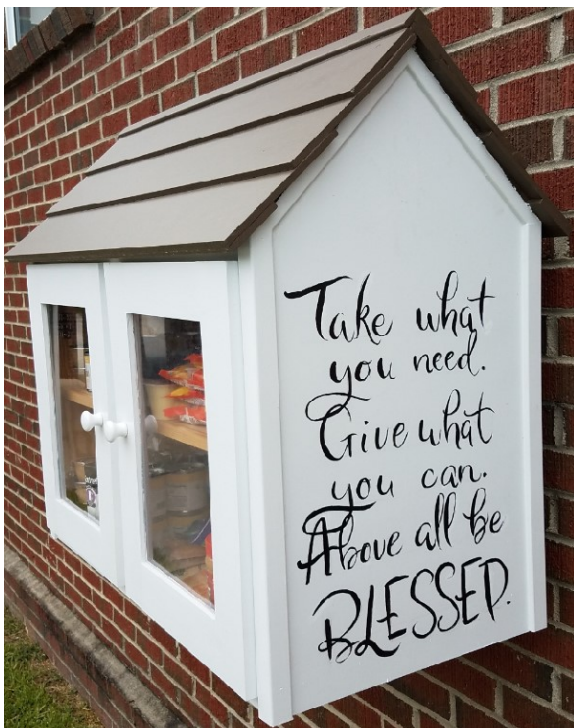 Take what
you need.
Give what
you can.
Above all be
BLESSED.